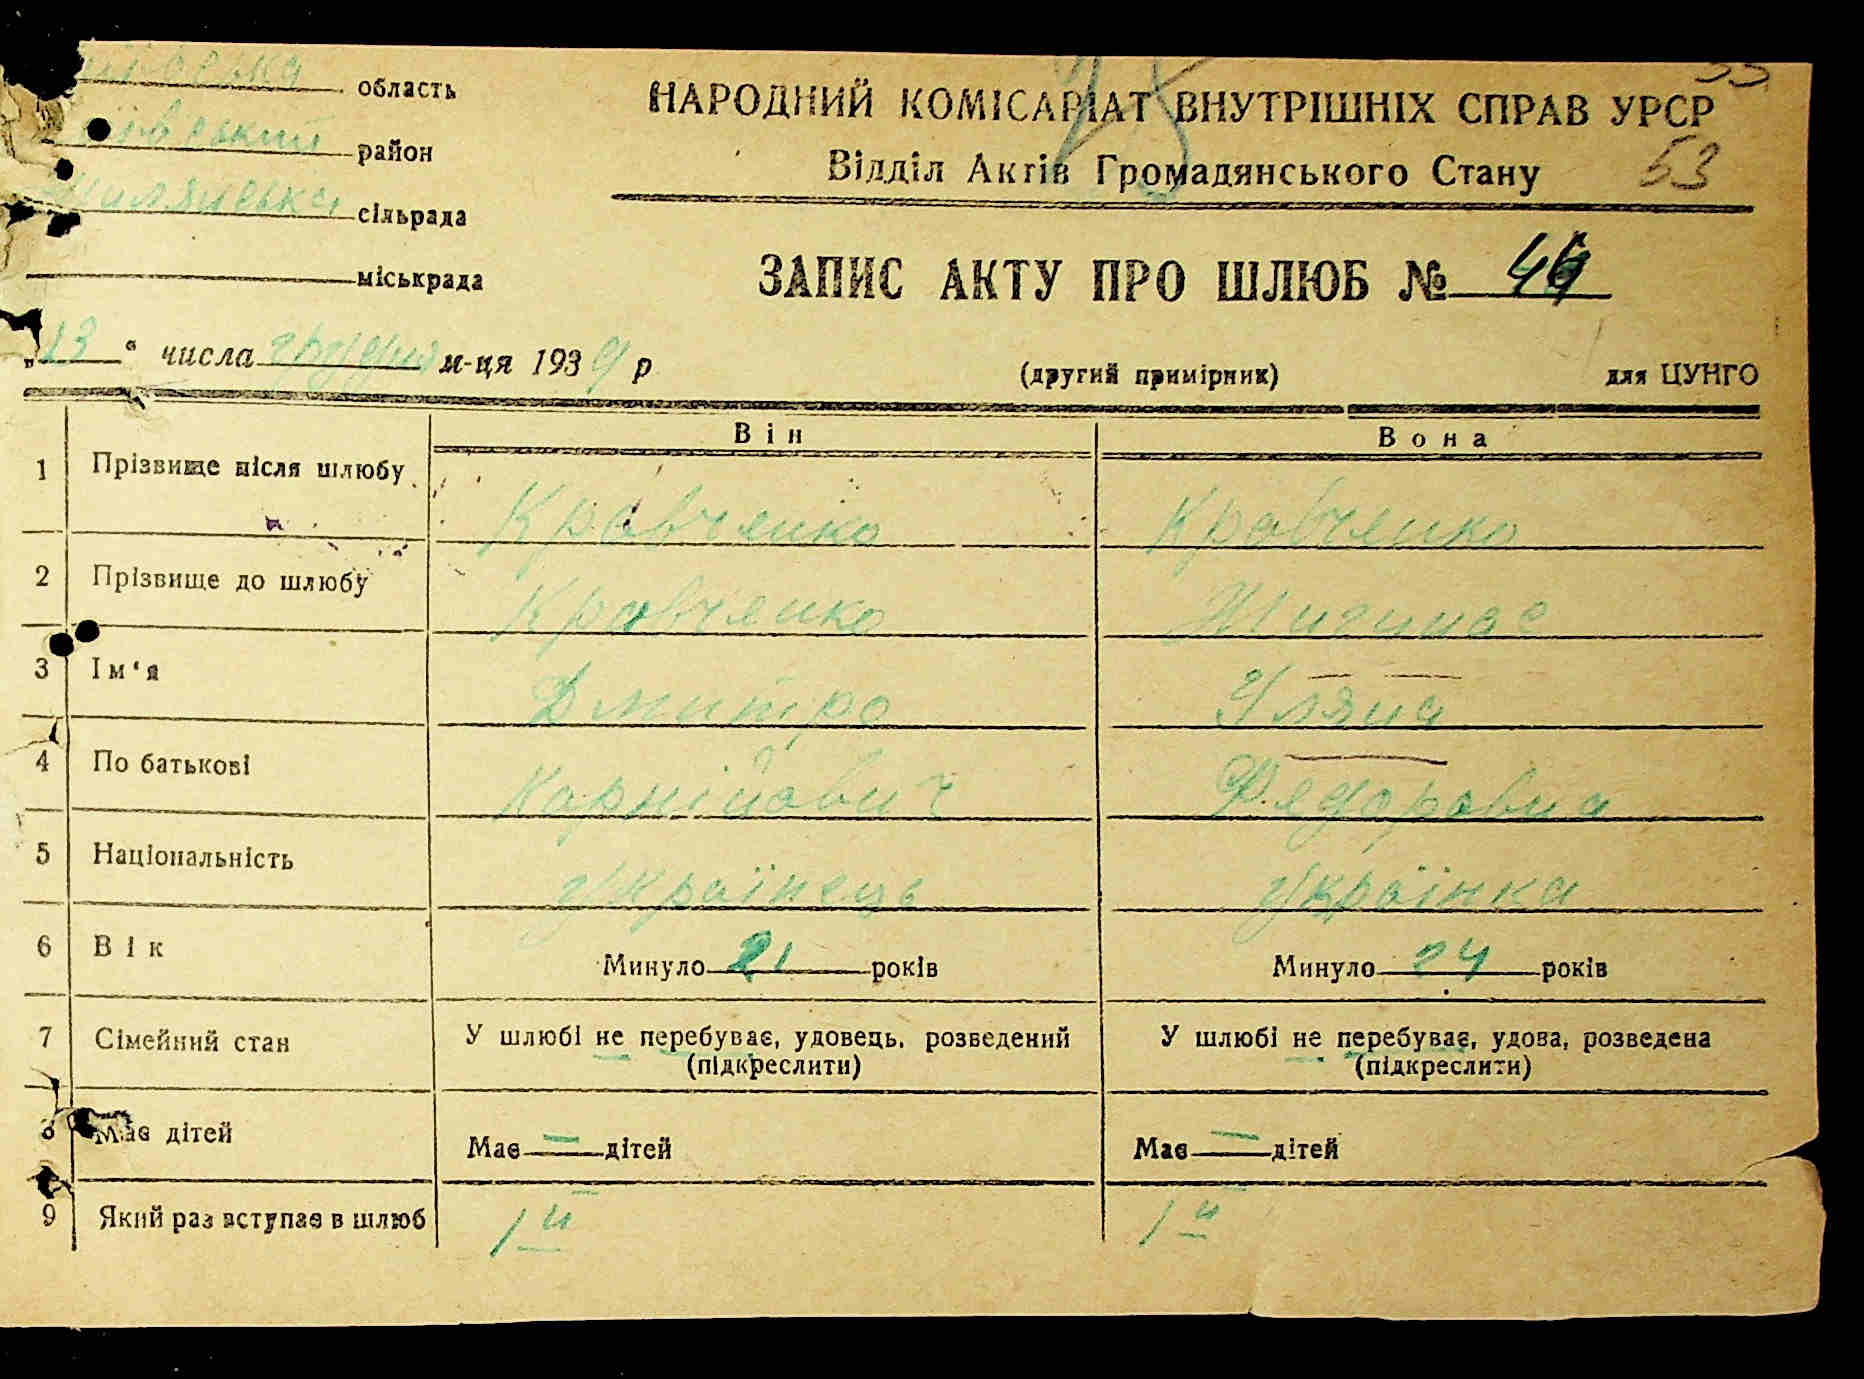 область
НАРОДНИЙ КОМІСАРІАТ ВНУТРІШНІХ СПРАВ УРСР
район
Відділ Актів Громадянського Стану 53
сільрада
ЗАПИС АКТУ ПРО ШЛЮБ № 46
міськрада
„13“ числа грудня м-ця 1939 р
(другий примірник) для ЦУНГО
Він Вона
1 Прізвище після шлюбу Кравченко Кравченко
2 Прізвище до шлюбу Кравченко
3 Ім‘я Дмитро Уляна
4 По батькові Корнійович Федоровна
5 Національність українець українка
6 Вік Минуло 21 років Минуло 24 років
7 Сімейний стан У шлюбі не перебуває, удовець, розведений У шлюбі не перебуває, удова, розведена
(підкреслити) (підкреслити)
8 Має дітей Має — дітей Має — дітей
9 Який раз вступає в шлюб 1й 1й